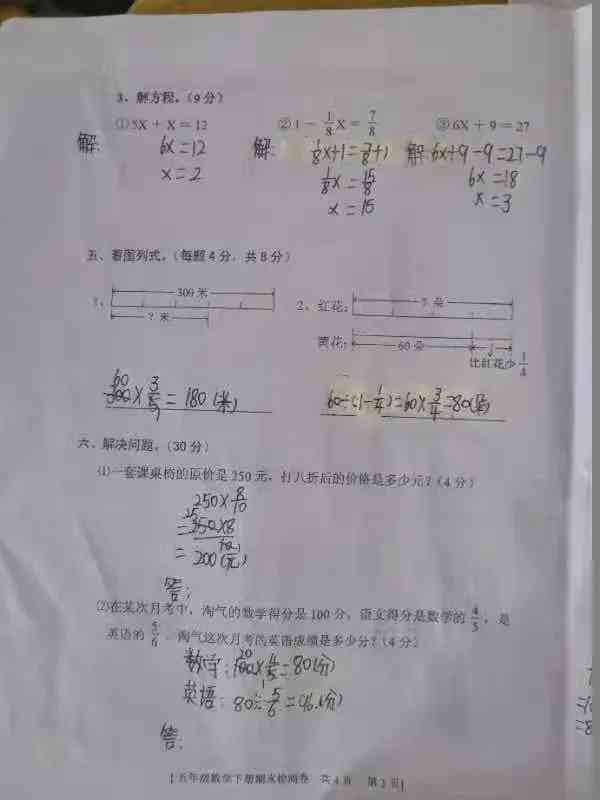 3、解方程。(9分)
①5X + X = 12 ②1 - 1/8 X = 7/8 ③6X + 9 = 27
解: 6x = 12 解: 1/8 x + 1 = 7/8 + 1 解: 6x+9-9=27-9
x = 2 1/8 x = 15/8 6x = 18
x = 15 x = 3
五、看图列式。(每题4分,共8分)
1、 300米 2、红花: ?朵
?米
黄花: 60朵 比红花少 1/4
60
300 × 3/5 = 180(米) 60÷(1-1/4)=60×3/4=80(朵)
六、解决问题。(30分)
(1)一套课桌椅的原价是250元,打八折后的价格是多少元?(4分)
250 × 8/10
25
= 250×8/10
= 200(元)
答:
(2)在某次月考中,淘气的数学得分是100分,语文得分是数学的 4/5 ,是
英语的 5/6 。淘气这次月考的英语成绩是多少分?(4分)
20
数学: 100 × 4/5 = 80(分)
1
英语: 80÷ 5/6 = (分)
答:
五年级数学下册期末检测卷 共4页 第3页